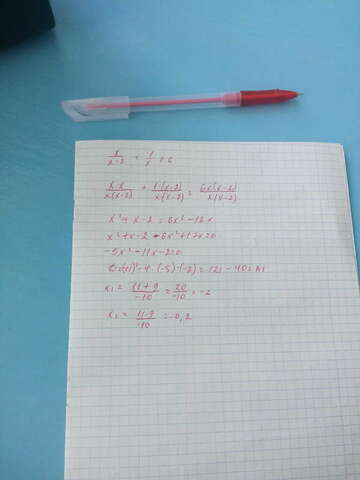 x/x-2 + 1/x = 6
x·x/x(x-2) + 1·(x-2)/x(x-2) = 6x(x-2)/x(x-2)
x²+x-2 = 6x²-12x
x²+x-2-6x²+12x=0
-5x²-11x-2=0
(11)²-4·(-5)·(-2)=121-40=81
x₁ = 11+9/-10 = 20/-10 = -2
x₂ = 11-9/-10 = -0,2